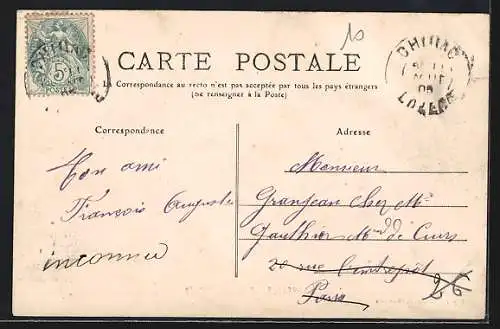 CARTE POSTALE
La Correspondance au recto n'est pas acceptée par tous les pays étrangers
(se renseigner à la Poste)
Correspondance
Adresse
5
POSTES
Ton ami
François Auguste
inconnu
Monsieur
Granjean chez Mr
Gauthier Md de Cuirs
20 rue
Paris